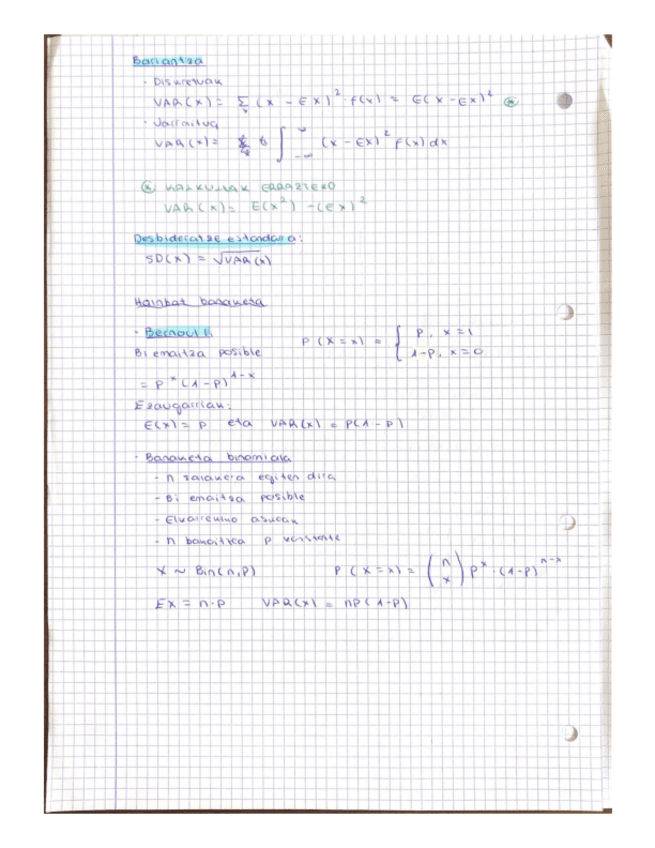 Bariantza
· Diskretuak
VAR(X) = Σ (x - EX)² · f(x) = E(X - EX)² ⊛
· Jarraitua
VAR(X) = ∫ ∞ -∞ (x - EX)² f(x) dx
⊛ KALKULUAK ERRAZTEKO
VAR(X) = E(X²) - (EX)²
Desbideratze estandarra:
SD(X) = √VAR(X)
Hainbat banaketa
· Bernoulli
P(X = x) = { p, x = 1
Bi emaitza posible
1-p, x = 0
= p^x (1-p)^(1-x)
Ezaugarriak:
E(X) = p eta VAR(X) = p(1-p)
· Banaketa binomiala
- n saiakera egiten dira
- Bi emaitza posible
- Elkarrekiko askeak
- n banaitza p
X ~ Bin(n,p) P(X = x) = (n x) p^x · (1-p)^(n-x)
EX = n·p VAR(X) = np(1-p)